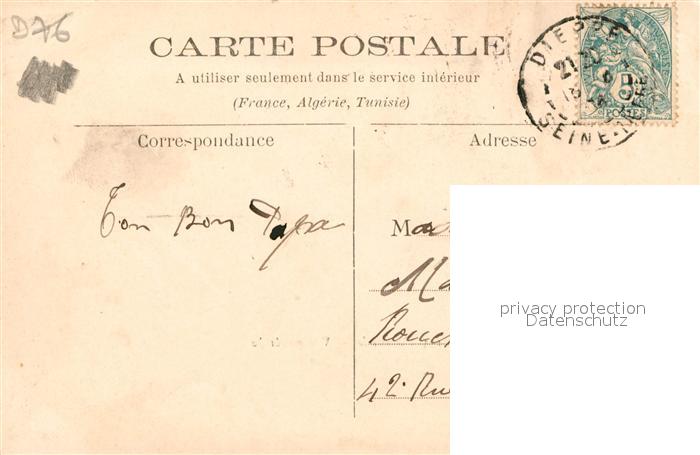 D76
CARTE POSTALE
A utiliser seulement dans le service intérieur
(France, Algérie, Tunisie)
DIEPPE
SEINE-INFRE
5
POSTES
Correspondance
Adresse
Ton Bon Papa
Mad
Ma
Rouen
42 Ru
privacy protection
Datenschutz